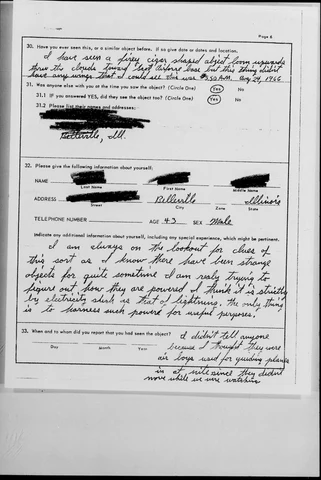 Page 6
30. Have you ever seen this, or a similar object before. If so give date or dates and location.
I have seen a firey cigar shaped object boom upwards
thru the clouds toward Scot Airforce base but this thing didn't
have any wings that I could see this was 3:50 A.M. Aug 29, 1966
31. Was anyone with you at the time you saw the object? (Circle One) Yes No
31.1 IF you answered YES, did they see the object too? (Circle One) Yes No
31.2 Please list their names and addresses:
Belleville, Ill.
32. Please give the following information about yourself:
NAME
Last Name First Name Middle Name
ADDRESS Belleville Illinois
Street City Zone State
TELEPHONE NUMBER AGE 43 SEX Male
Indicate any additional information about yourself, including any special experience, which might be pertinent.
I am always on the lookout for clues of
this sort as I know there have been strange
objects for quite sometime I am realy trying to
figure out how they are powered I think it is strictly
by electricity such as that of lightning. the only thing
is to harness such powerd for useful purposes.
33. When and to whom did you report that you had seen the object? I didn't tell anyone
Day Month Year because I thought they were
air boys used for guiding planes
in at nite since they didn't
move while we were watching